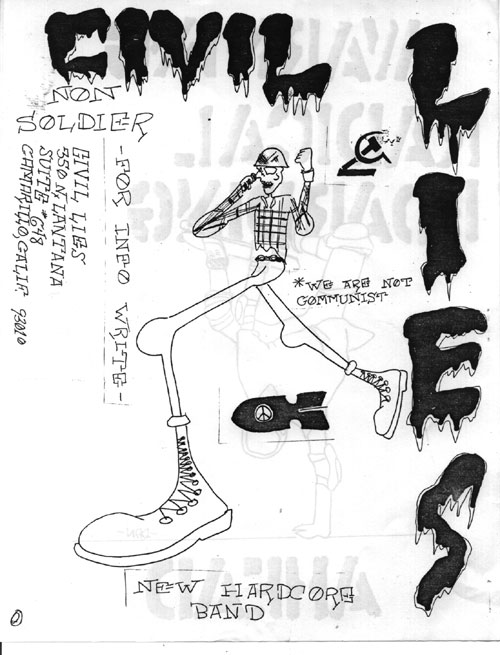 CIVIL
LIES
NON
SOLDIER
-FOR INFO WRITE-
CIVIL LIES
550 N. LANTANA
SUITE #648
CAMARILLO, CALIF. 93010
*WE ARE NOT
COMMUNIST
NEW HARDCORE
BAND